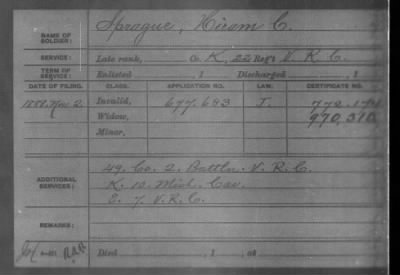 Sprague, Hiram C.
NAME OF SOLDIER:
SERVICE: Late rank, Co. K, 22 Reg't V. R. C.
TERM OF SERVICE: Enlisted , 1 Discharged , 1
DATE OF FILING. CLASS. APPLICATION NO. LAW. CERTIFICATE NO.
1888 Nov 2. Invalid, 677.683
Widow, 970,310
Minor,
49. Co. 2. Battln. V. R. C.
ADDITIONAL SERVICES: K. 10. Mich. Cav.
E. 7. V. R. C.
REMARKS:
Died , 1 , at